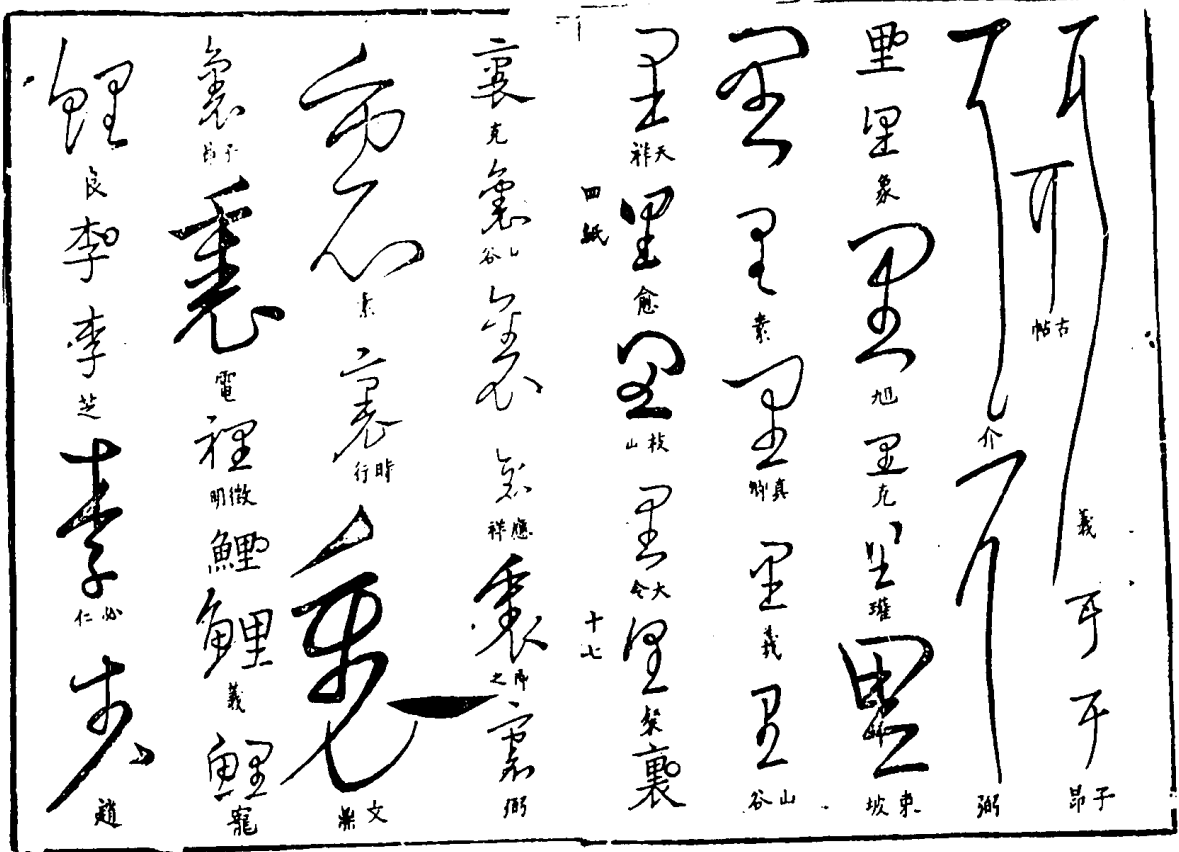 耳義耳耳子昂
耳古帖
耳介耳弼
里里象里旭里克里瓘里東坡
里里素里真卿里義里山谷
里天祥里愈里枝山里大令里裏
四紙 十七
裏克裏山谷裏裏應祥裏裏弼
裏素裏時行裏文
裏子昂裏電裡徵明鯉鯉義鯉寵
鯉良李李芝李必仁李趙